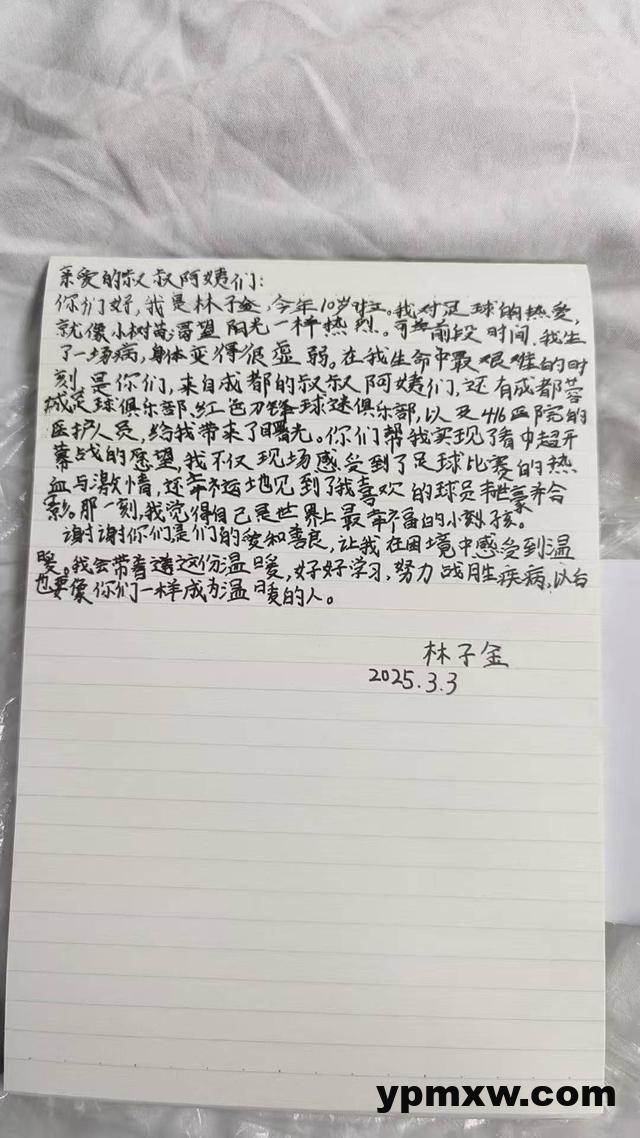 亲爱的叔叔阿姨们:
你们好,我是林子金,今年10岁。我对足球的热爱,
就像小树苗渴望阳光一样热烈。可是前段时间,我生
了一场病,身体变得很虚弱。在我生命中最艰难的时
刻,是你们,来自成都的叔叔阿姨们,还有成都蓉
城足球俱乐部、红色刀锋球迷俱乐部,以及416医院的
医护人员,给我带来了曙光。你们帮我实现了看中超开
幕战的愿望,我不仅现场感受到了足球比赛的热
血与激情,还幸运地见到了我喜欢的球员韦世豪并合
影。那一刻,我觉得自己是世界上最幸福的小孩。
谢谢你们是们的爱和善良,让我在困境中感受到温
暖。我会带着这份温暖,好好学习,努力战胜疾病,以后
也要像你们一样成为温暖的人。
林子金
2025.3.3
ypmxw.com